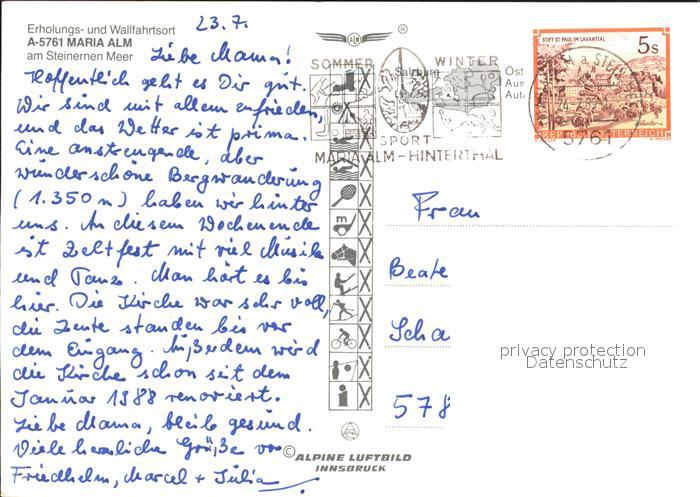 Erholungs- und Wallfahrtsort
A-5761 MARIA ALM
am Steinernen Meer
23.7.
Liebe Mama!
Hoffentlich geht es Dir gut.
Wir sind mit allem zufrieden,
und das Wetter ist prima.
Eine anstrengende, aber
wunderschöne Bergwanderung
(1.350 m) haben wir hinter
uns. An diesem Wochenende
ist Zeltfest mit viel Musik
und Tanz. Man hört es bis
hier. Die Kirche war sehr voll,
die Leute standen bis vor
dem Eingang. Außerdem wird
die Kirche schon seit dem
Januar 1988 renoviert.
Liebe Mama, bleib gesund.
Viele herzliche Grüße von
Friedhelm, Marcel + Julia
SOMMER
WINTER
Salzburg
Öst
Aus
Aut
SPORT
MARIA ALM - HINTERTHAL
STIFT ST. PAUL IM LAVANTTAL
5 S
REPUBLIK ÖSTERREICH
5761
Frau
Beate
Scha
578
privacy protection
Datenschutz
© ALPINE LUFTBILD
INNSBRUCK